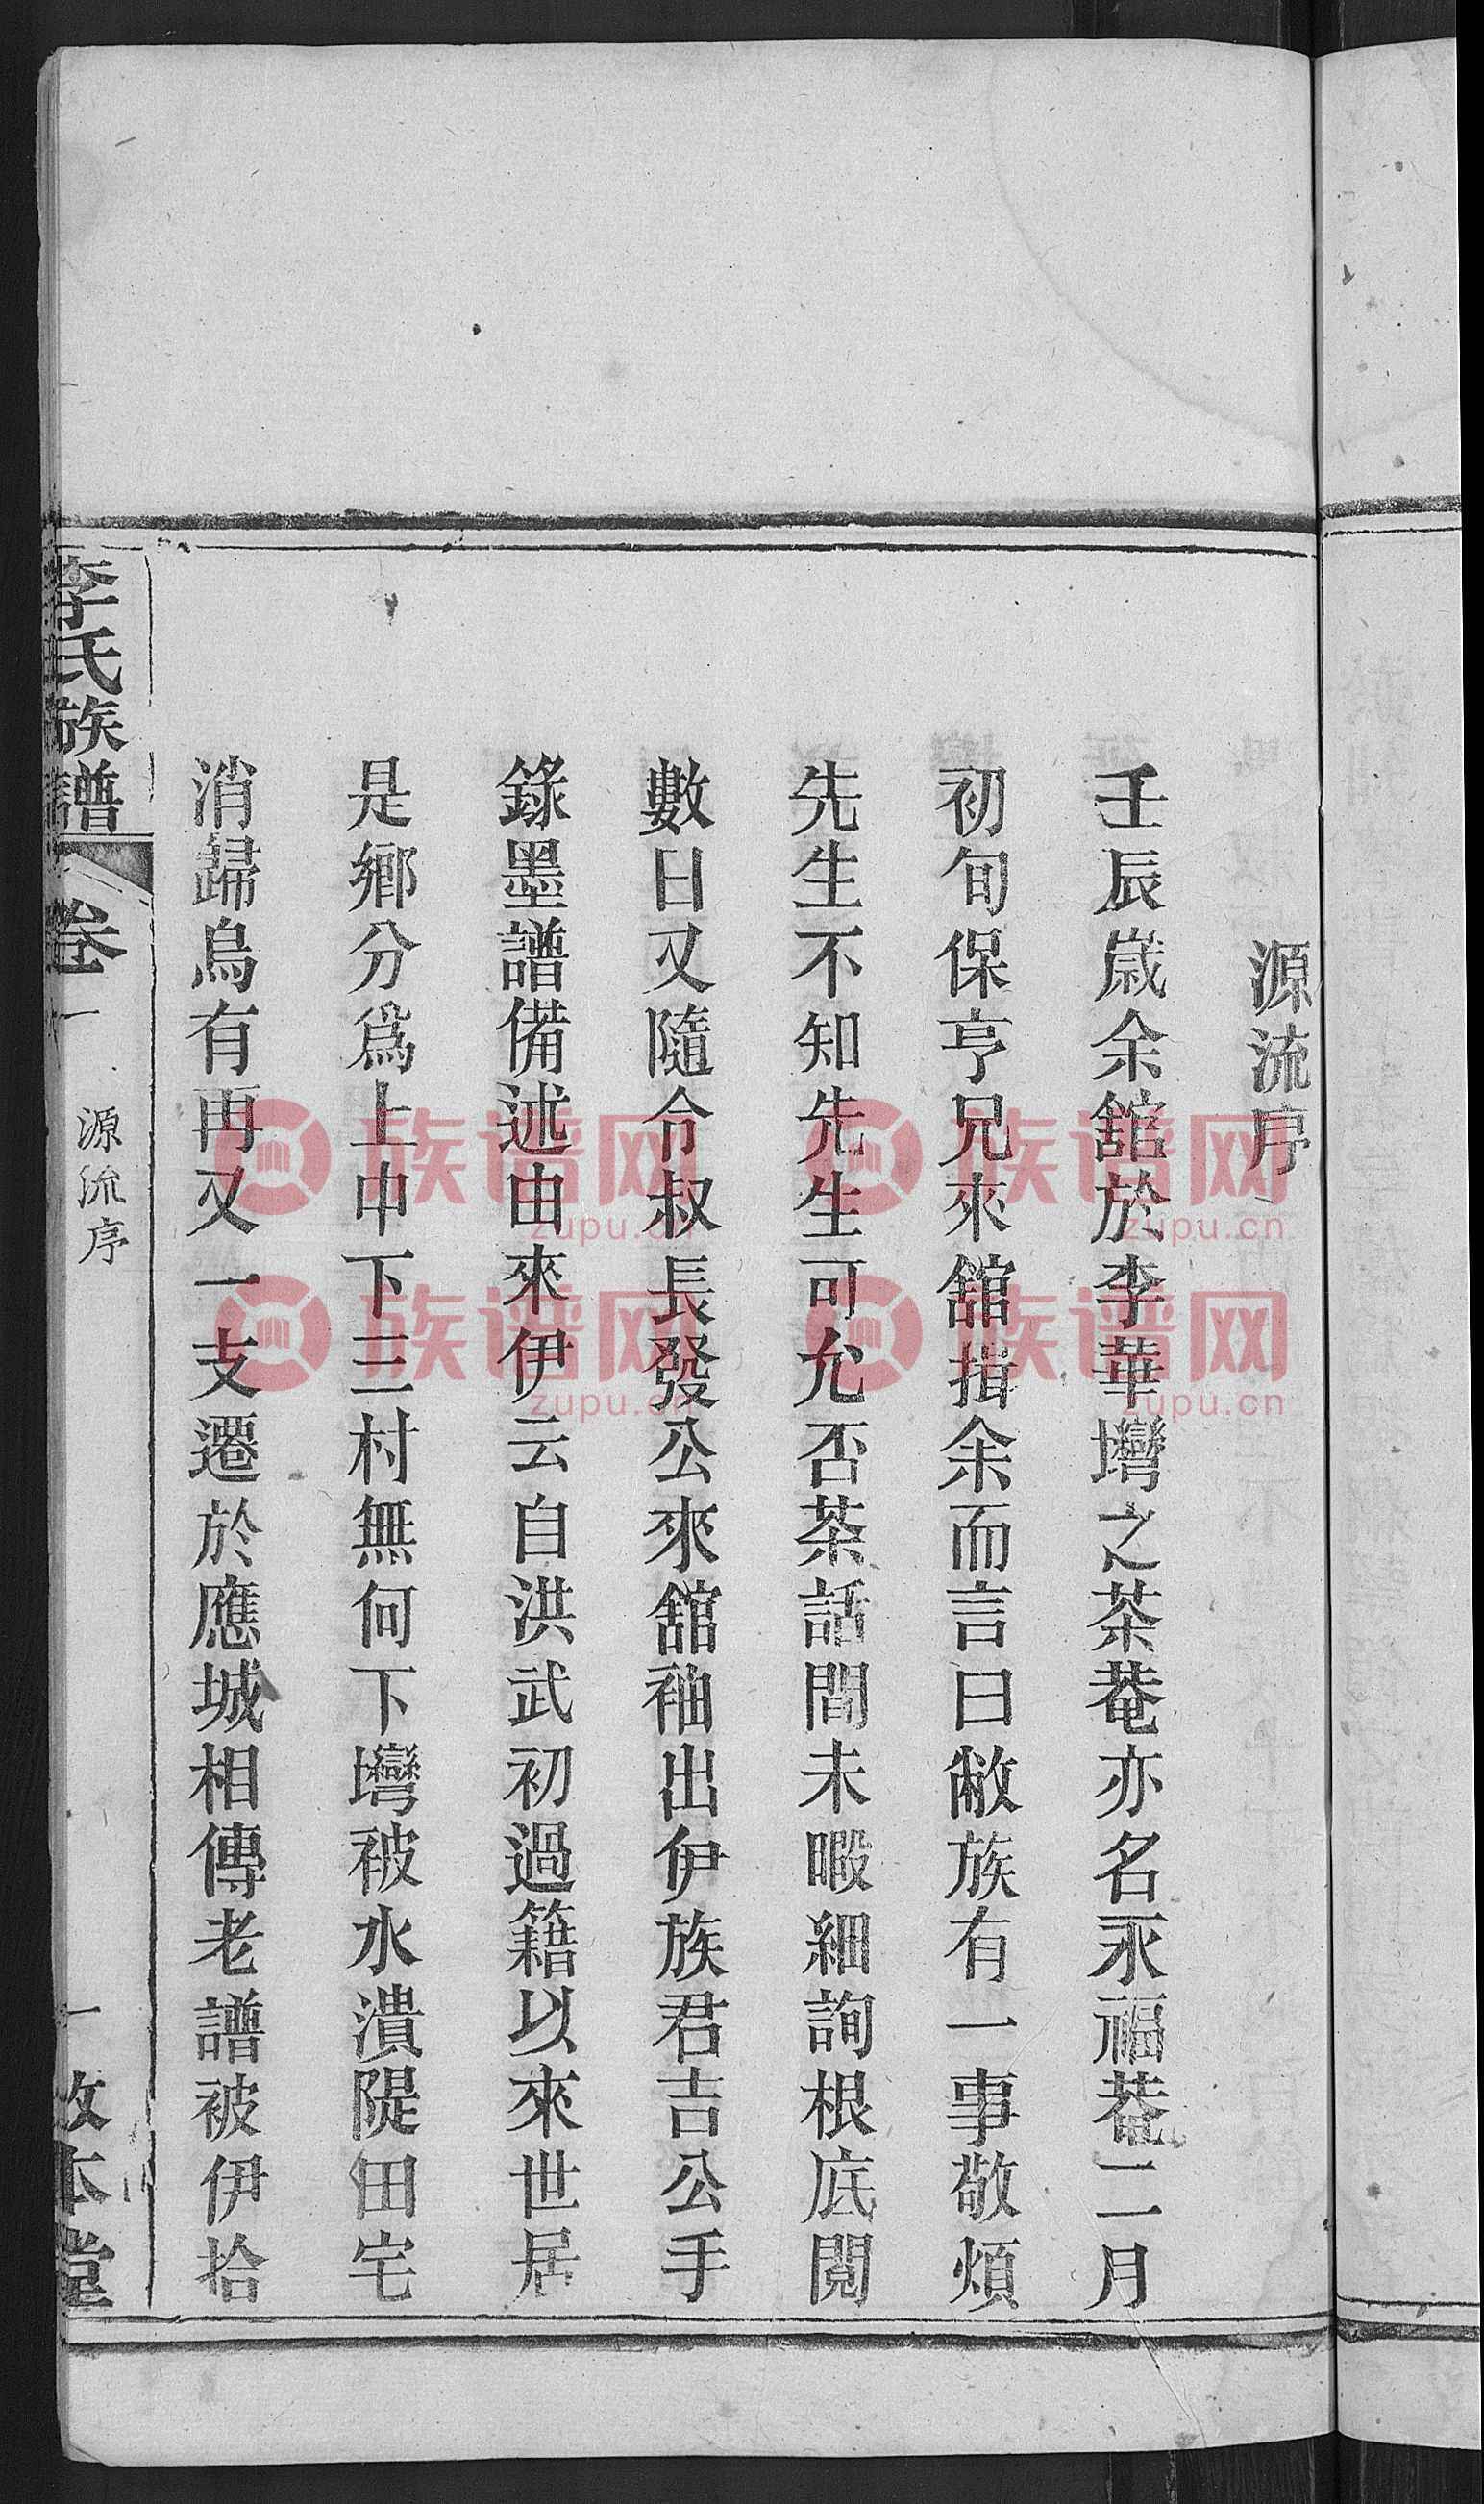 源流序
壬辰歲余舘於李華塆之茶菴亦名永福菴二月
初旬保亨兄來舘揖余而言曰敝族有一事敬煩
先生不知先生可允否茶話間未暇細詢根底閱
數日又隨令叔長發公來舘袖出伊族君吉公手
錄墨譜備述由來伊云自洪武初過籍以來世居
是鄉分爲上中下三村無何下塆被水潰隄田宅
消歸烏有再又一支遷於應城相傳老譜被伊拾
李氏族譜
卷一
源流序
一
敦本堂
族谱网
zupu.cn
族谱网
zupu.cn
族谱网
zupu.cn
族谱网
zupu.cn